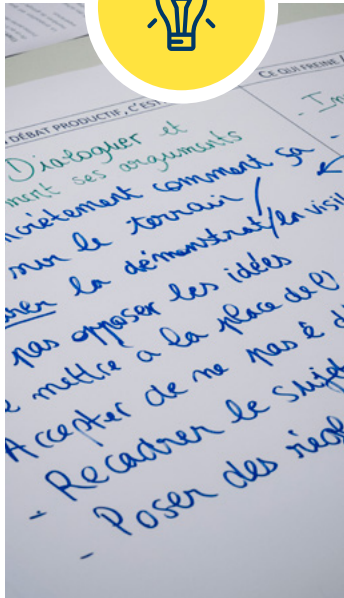 DÉBAT PRODUCTIF, C'EST
CE QUI FREINE
Dialoguer et
ses arguments
comment sa
sur le terrain /
la démonstrat/la visi
pas opposer les idées
mettre à la place de l'
Accepter de ne pas ê d
- Recadrer le sujet
- Poser des